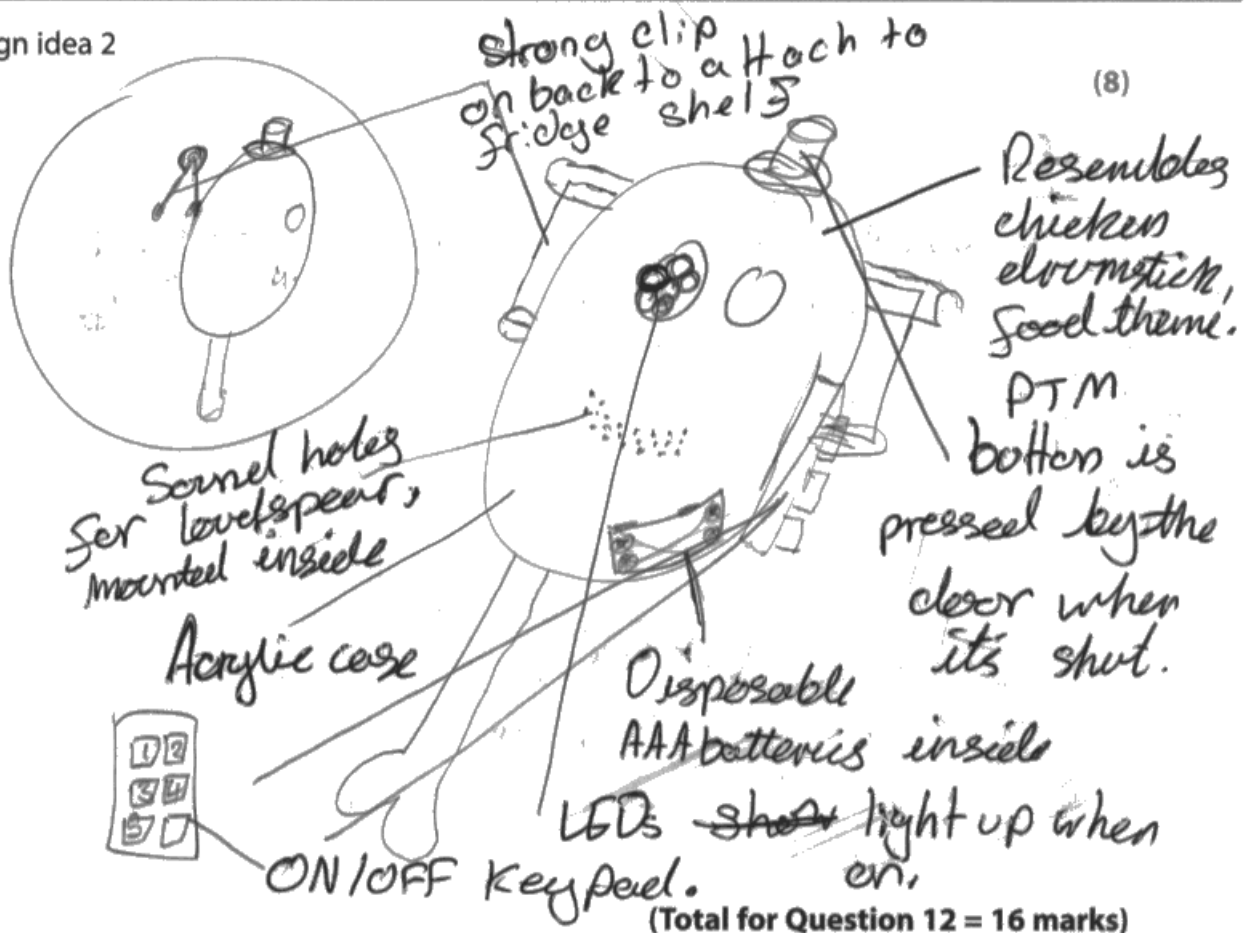 gn idea 2
(8)
strong clip
on back to attach to
fridge shelf
Resembles
chicken
drumstick,
food theme.
PTM
botton is
pressed by the
door when
it's shut.
Sound holes
for loudspear,
mounted inside
Acrylic case
Disposable
AAA batteries inside
LEDs light up when
on.
1 2
3 4
5
ON/OFF keypad.
(Total for Question 12 = 16 marks)